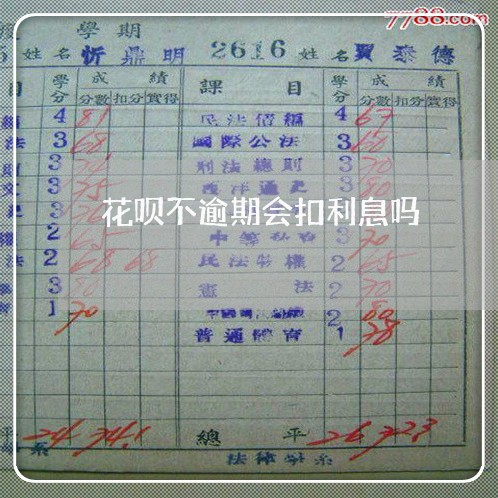 7788.com
學期
5 姓名 忻鼎明 2616 姓名 賈泰德
目 學分 成績 課目 學分 成績
分數 扣分 實得 分數 扣分 實得
4 81 民法債編 4 67
法 3 68 國際公法 3 60
3 刑法總則 3 70
文 3 75 西洋通史 3 80
花呗不逾期会扣利息吗
權 2 65 3 70
法 2 68 68 民法物權 2 65
3 80 憲法 2 70
1 70 2 80
普通體育 1 78
平 24 74.1 總平 26
系 法律學系